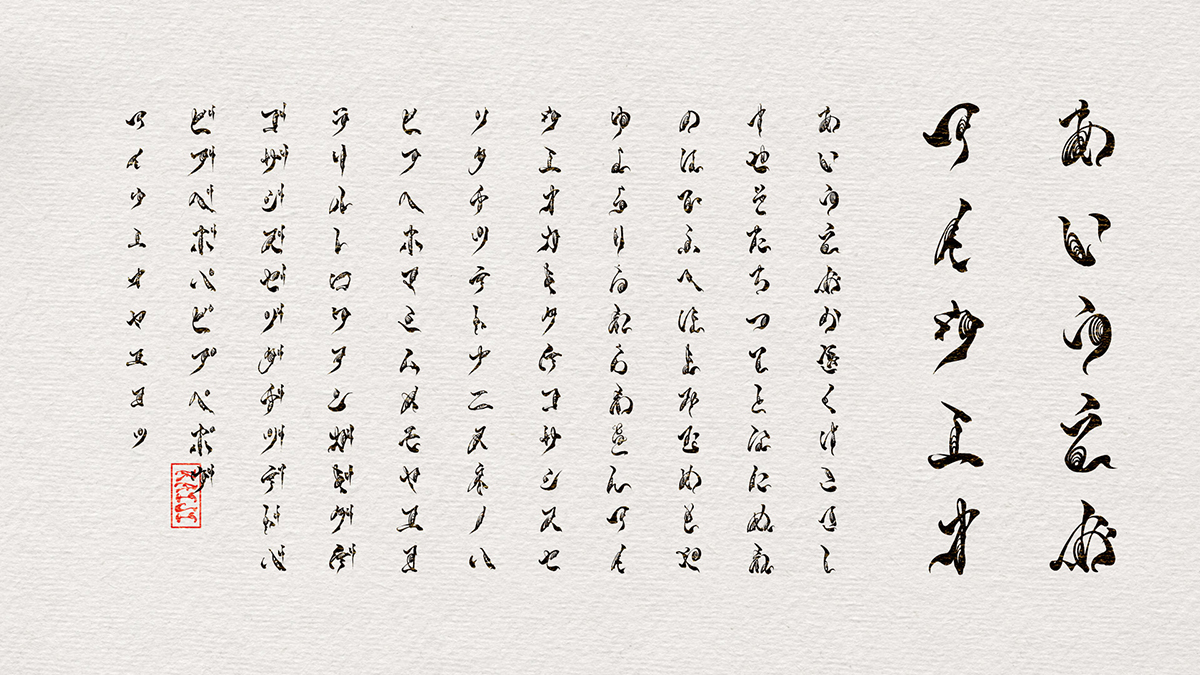 あいうえお
アイウエオ
あいうえおかきくけこさし
すせそたちつてとなにぬね
のはひふへほまみむめもや
ゆよらりるれろわをんアイ
ウエオカキクケコサシスセ
ソタチツテトナニヌネノハ
ヒフヘホマミムメモヤユヨ
ラリルレロワヲンガギグゲ
ゴザジズゼゾダヂヅデドバ
ビブベボパピプペポヴ
ァィゥェォャュョッ